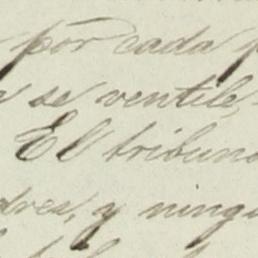 por cada
se ventile,
El tribuno
dres, y ningu